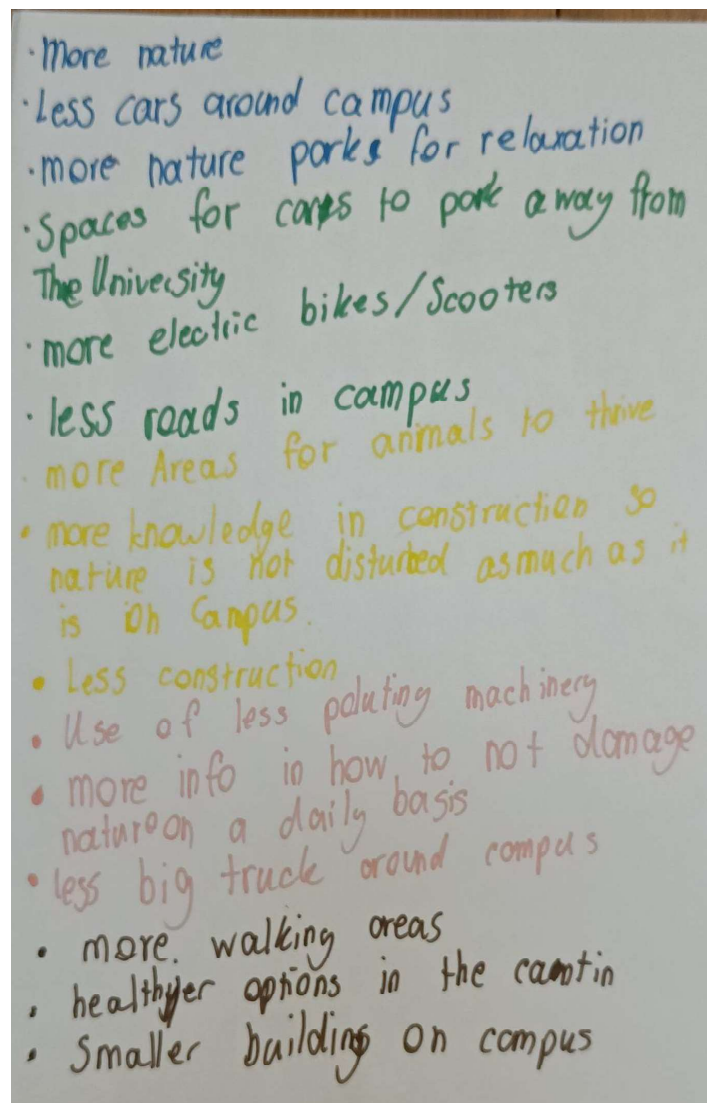 · More nature
· Less cars around campus
· more nature parks for relaxation
· Spaces for cars to park away from
The University
· more electric bikes/Scooters
· less roads in campus
· more Areas for animals to thrive
· more knowledge in construction so
nature is not disturbed as much as it
is on Campus.
· Less construction
· Use of less poluting machinery
· more info in how to not damage
nature on a daily basis
· less big truck around campus
· more. walking areas
· healthyer options in the cantin
· Smaller building on campus